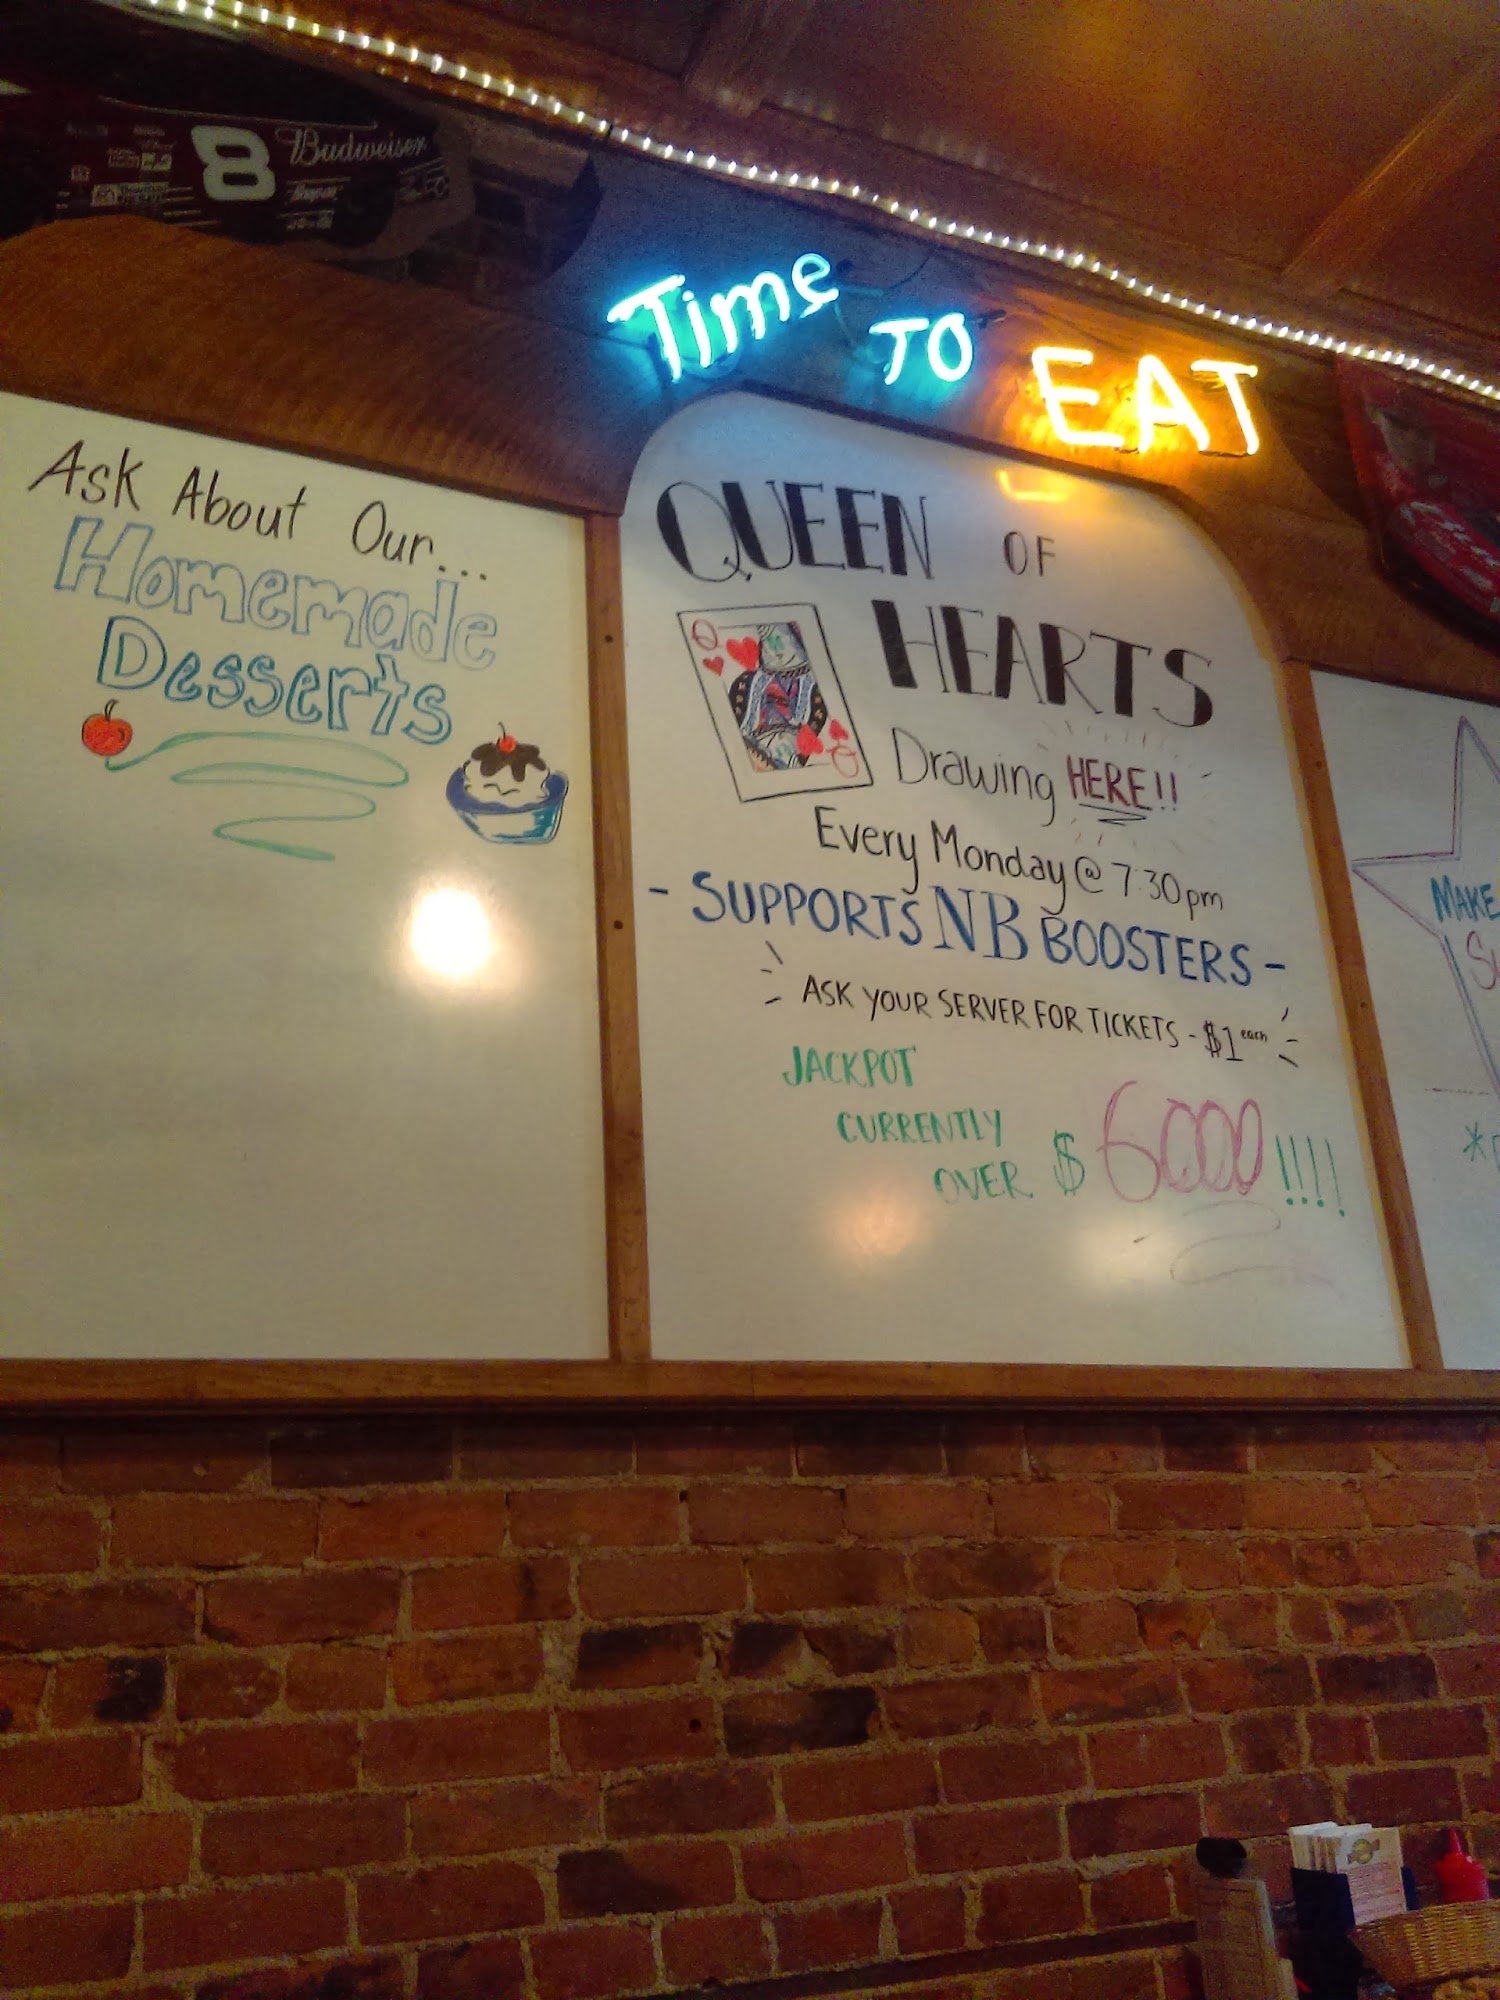 8 Budweiser
Time TO EAT
Ask About Our...
Homemade
Desserts
QUEEN OF
HEARTS
Q
Q
Drawing HERE!!
Every Monday @ 7:30pm
- SUPPORTS NB BOOSTERS -
ASK YOUR SERVER FOR TICKETS - $1 each
JACKPOT
CURRENTLY
OVER $6000!!!!
MAKE